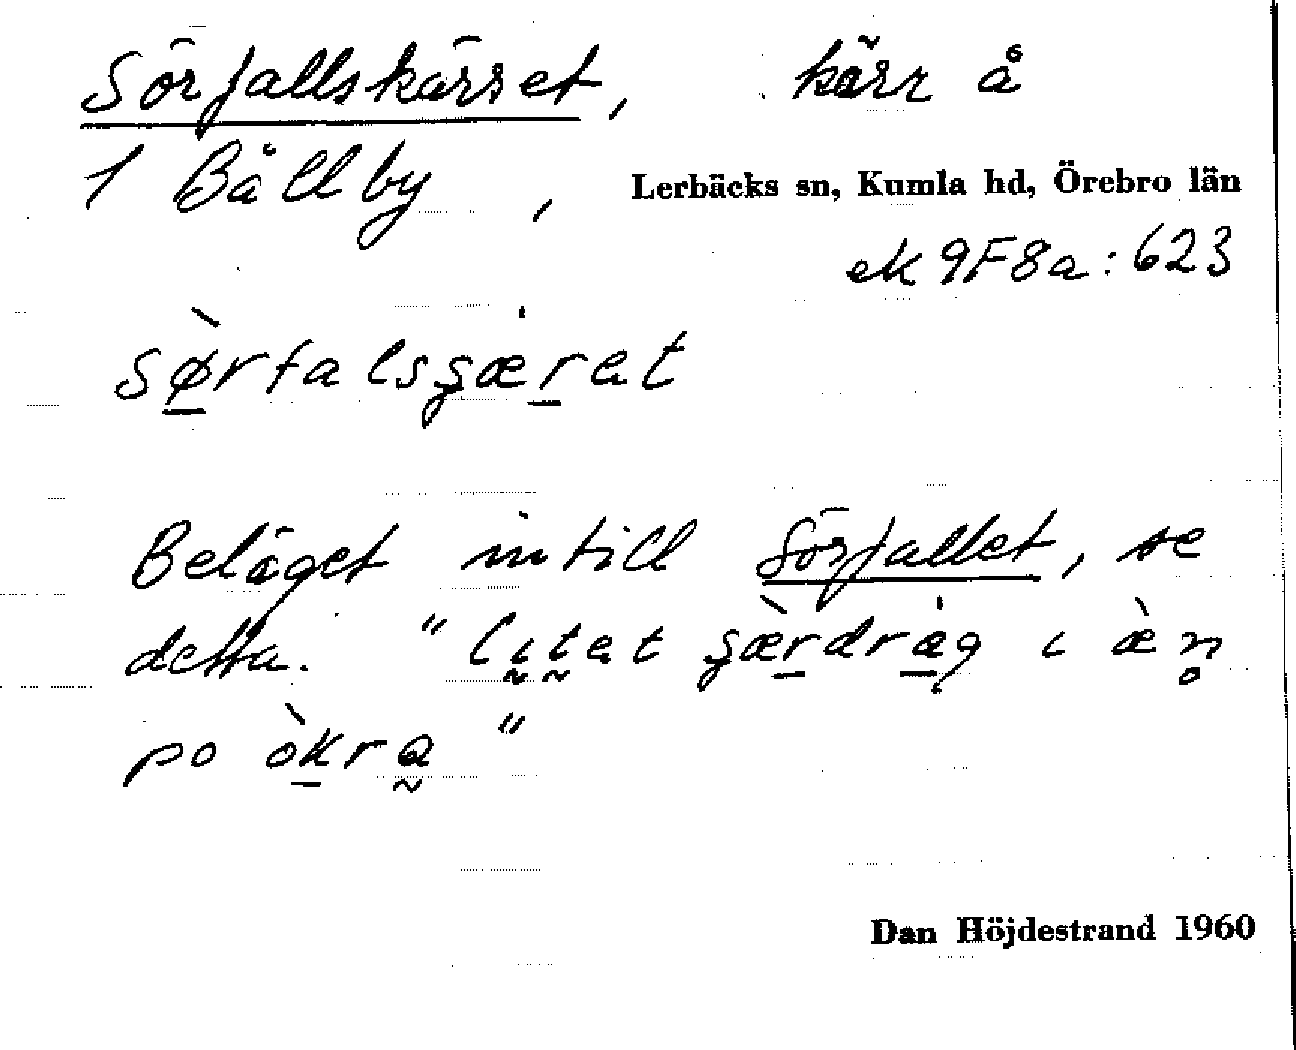 Sörfallskärret, kärr å
1 Bållby, Lerbäcks sn, Kumla hd, Örebro län
ek 9F8a:623
sø̠̀rfalsʂæ̍r̠at
Beläget intill Sörfallet, se
detta. "lı̰t̰at ʂæ̀r̠drå̠g ı æ̀n̥
po òk̠ra̰"
Dan Höjdestrand 1960